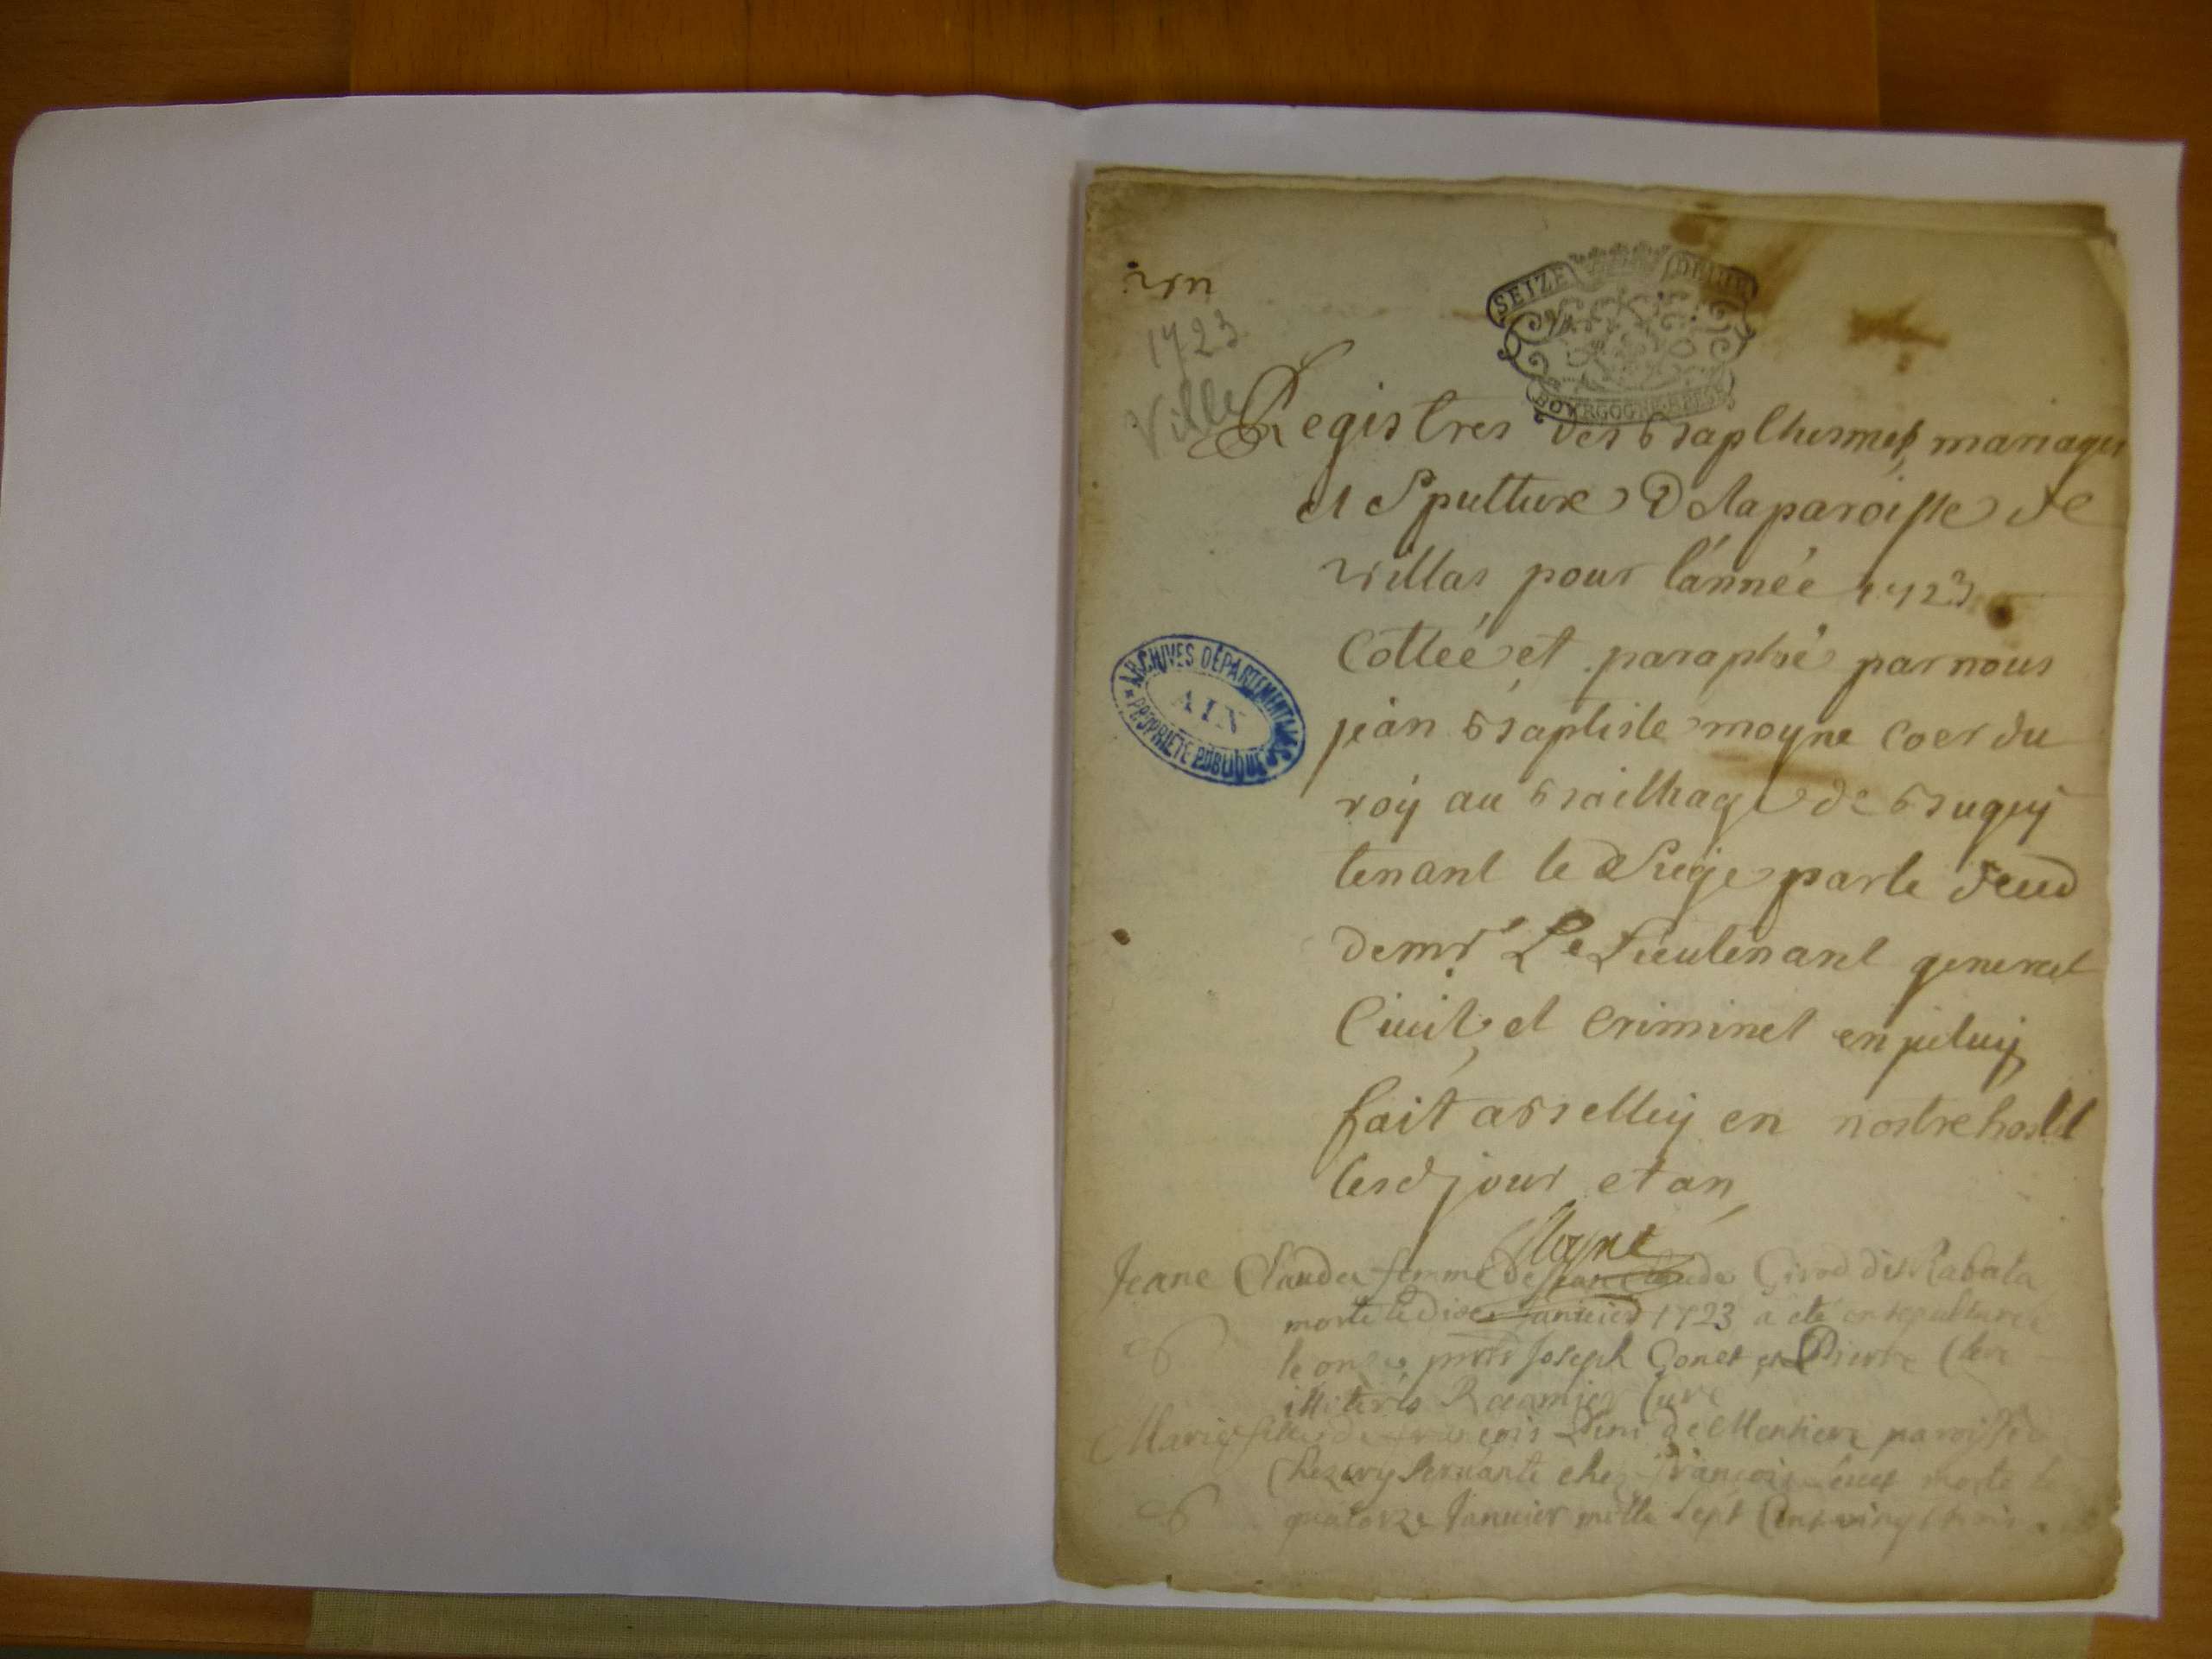 1723
Ville
SEIZE DENIE
BOVRGOGNE BRESSE
Registres des bapthismes mariages
et Spulture De la paroisse de
villas pour l'année 1723
Cotteé et paraphé par nous
jean baptiste moyne Coer du
roy au bailliage de bugey
tenant le Siege par le deced
de mr Le Lieutenant general
Ciuil et Criminel en jcluy
fait a belley en nostre hostel
lesd jour et an
Moyne
ARCHIVES DÉPARTEMENTALES
AIN
PROPRIÉTÉ PUBLIQUE
Jeane Claudea femme de Jean Claude Girod dit Rabata
morte le dixe Januier 1723 a eté ensepulturée
le onze pnts Joseph Gonet et Pierre Clerc
illiterés Curé
Marie fille de françois de paroisse de
Chezery Seruante chez françois morte le
quatorze Januier mille Sept Cent vingt trois